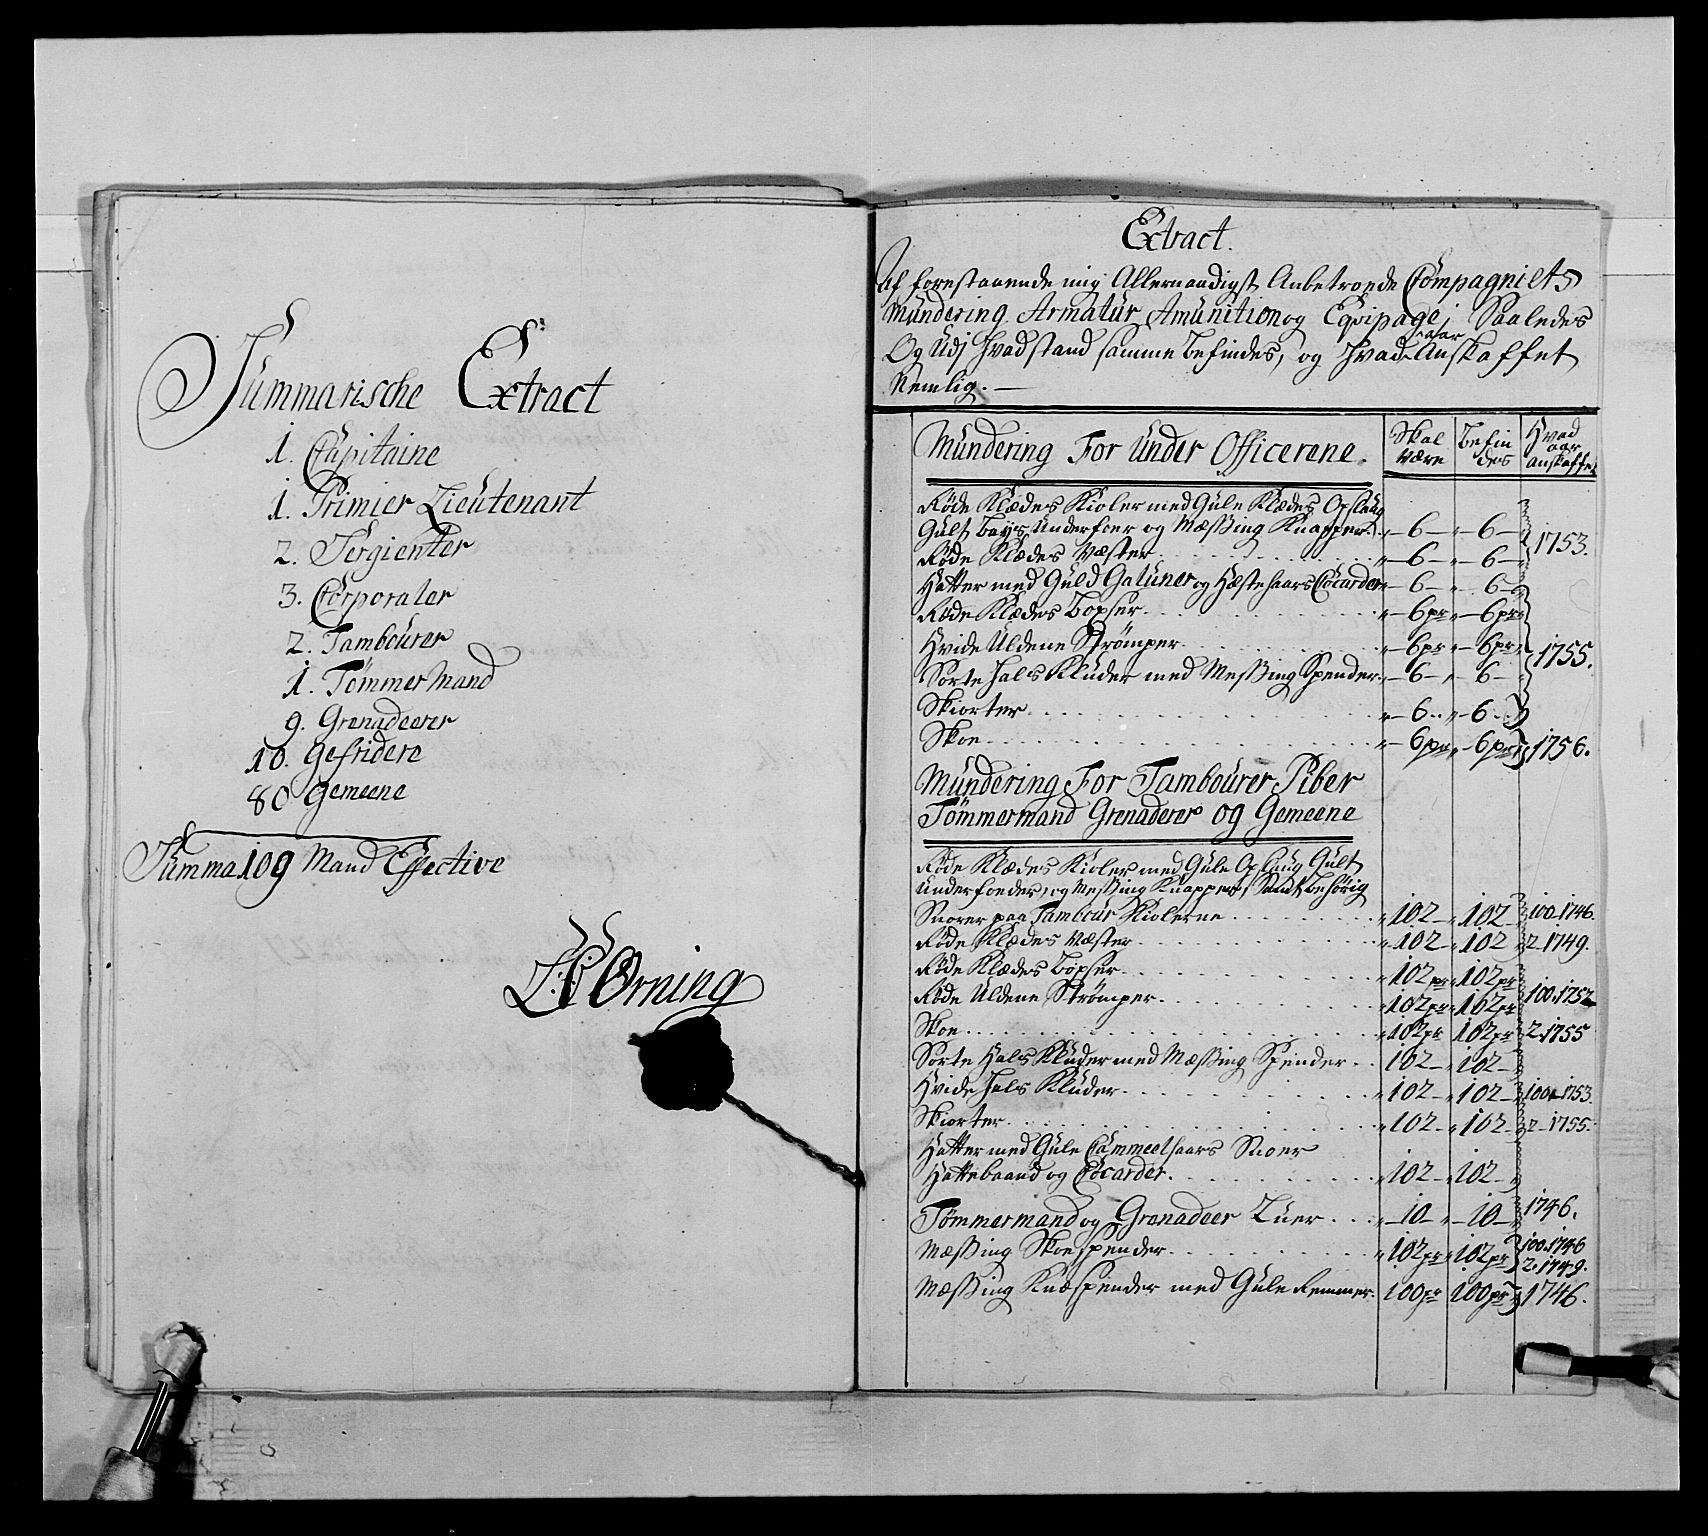 Summarische Extract
1. Capitaine
1. Primier Lieutenant
2. Sergienter
3. Corporaler
2. Tambourer
1. Tømmermand
9. Grenadeerer
10. Gefridere
80 Gemeene
Summa 109 Mand Effective
Ørning
Extract.
Af forestaaende mig Allernaadigst Anbetroede Compagniets
Mundering, Armatur, Amunition og Eqvipage, Saaledes
Og Udj Hvad stand samme befindes, og Hvad aar Anskaffet
Nemlig.
Mundering For Under Officerene. Skal være Befindes Hvad aar anskaffet
Røde Klædes Kioler med Gule Klædes Opslaug
Gult Bays Underfoer og Mæssing Knapper. 6 6
Røde Klædes Væster 6 6 1753.
Hatter med Guld Galuner og Hæstehaars Cocarder 6 6
Røde Klædes Boxser 6 pr 6 pr
Hvide Uldene Strømper 6 pr 6 pr 1755.
Sorte Hals Kluder med Messing Spender 6 6
Skiorter 6 6
Skoe 6 pr 6 pr 1756.
Mundering For Tambourer Piber
Tømmermand Grenaderer og Gemeene
Røde Klædes Kioler med Gule Opslaug Gult
Underfoeder, og Messing Knapper, Samt behørig
Snorer paa Tambour Kiolerne 102 102 100-1746.
Røde Klædes Væster 102 102 2-1749.
Røde Klædes Boxser 102 pr 102 pr
Røde Uldene Strømper 102 pr 102 pr 100.1752
Skoe 102 pr 102 pr 2.1755
Sorte Hals Kluder med Mæssing Spender 102 102
Hvide Hals Kluder 102 102 100-1753.
Skiorter 102 102 2-1755.
Hatter med Gule Cammeelhaars Snoer
Hattebaand og Cocarder 102 102
Tømmermand og Grenadeer Luer 10 10 1746.
Mæssing Skoespender 102 pr 102 pr 100.1746
2.1749.
Mæssing Knæspender med Gule Remmer 100 pr 100 pr 1746.